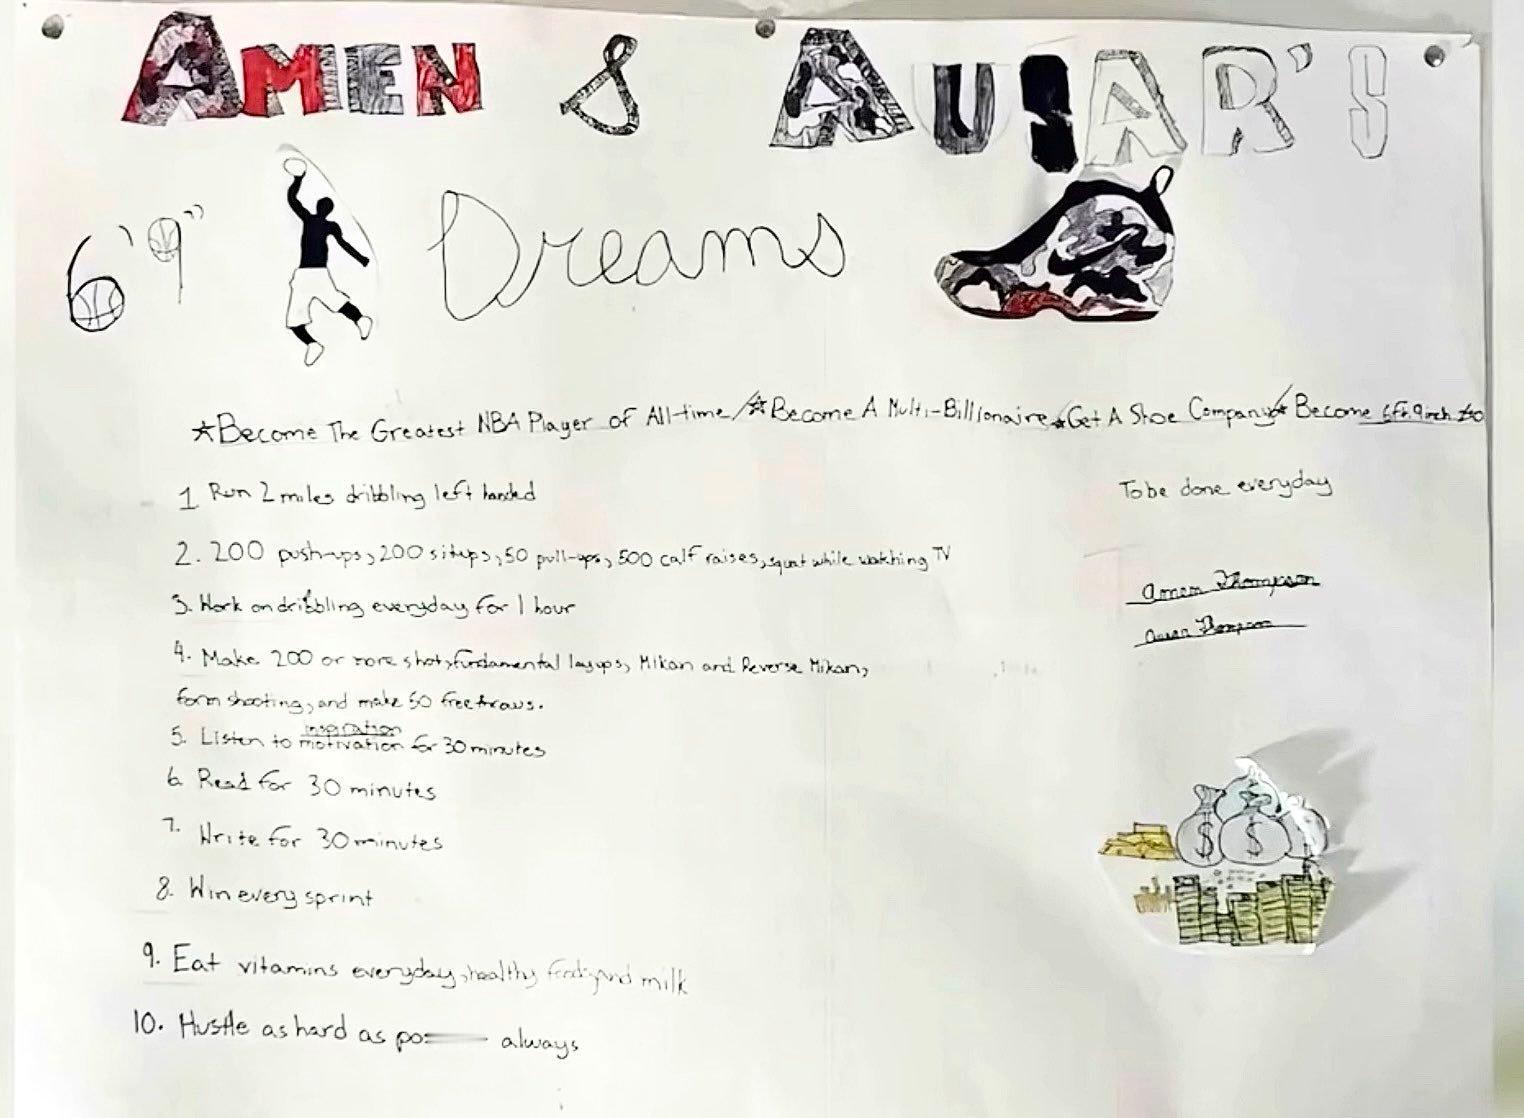 AMEN & AUSAR'S
6'9" Dreams
☆Become The Greatest NBA Player of All-time/☆Become A Multi-Billionaire☆Get A Shoe Company☆Become 6ft. 9inch
1 Run 2 miles dribbling left handed
To be done everyday
2. 200 push-ups, 200 situps, 50 pull-ups, 500 calf raises, squat while watching TV
3. Work on dribbling everyday for 1 hour
Amen Thompson
Ausar Thompson
4. Make 200 or more shots, fundamental layups, Mikan and Reverse Mikan,
form shooting, and make 50 free traws.
inspiration
5. Listen to motivation for 30 minutes
6. Read for 30 minutes
7. Write for 30 minutes
8. Win every sprint
$ $
9. Eat vitamins everyday, healthy food, and milk
10. Hustle as hard as po always